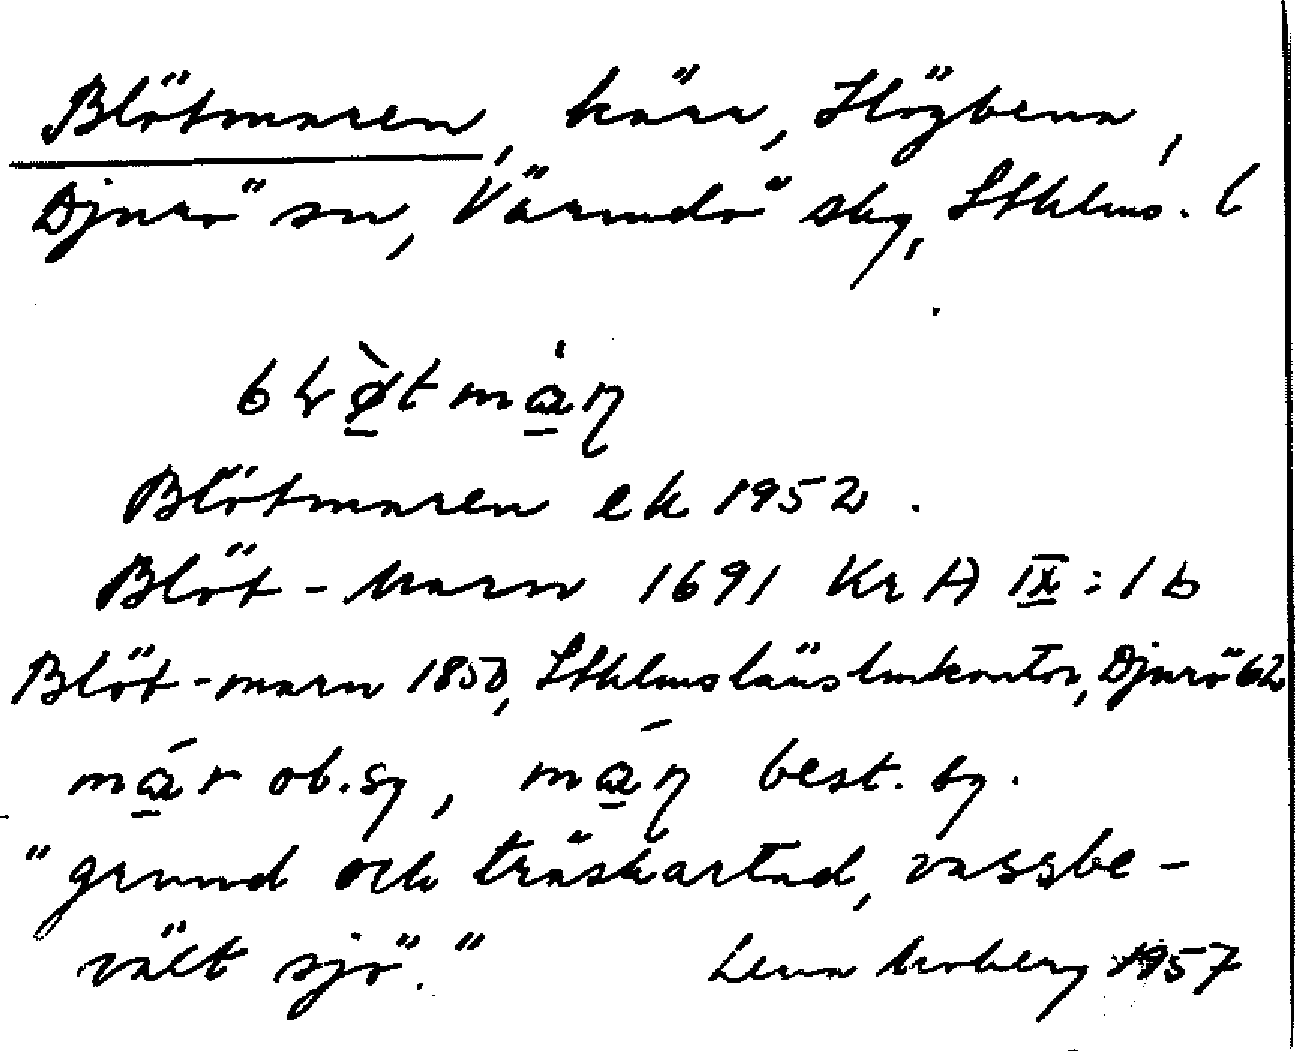 Blötmaren, kärr, Högbena,
Djurö sn, Värmdö skg, Sthlms. l
Blötmaren ek 1952.
Blöt-marn 1691 Kr A IX:1b
Blöt-marn 1850, Sthlmsläns lmkontor, Djurö 62
ob.sg, best. sg.
"grund och träskartad, vassbe-
vält sjö." Lena Moberg 1957